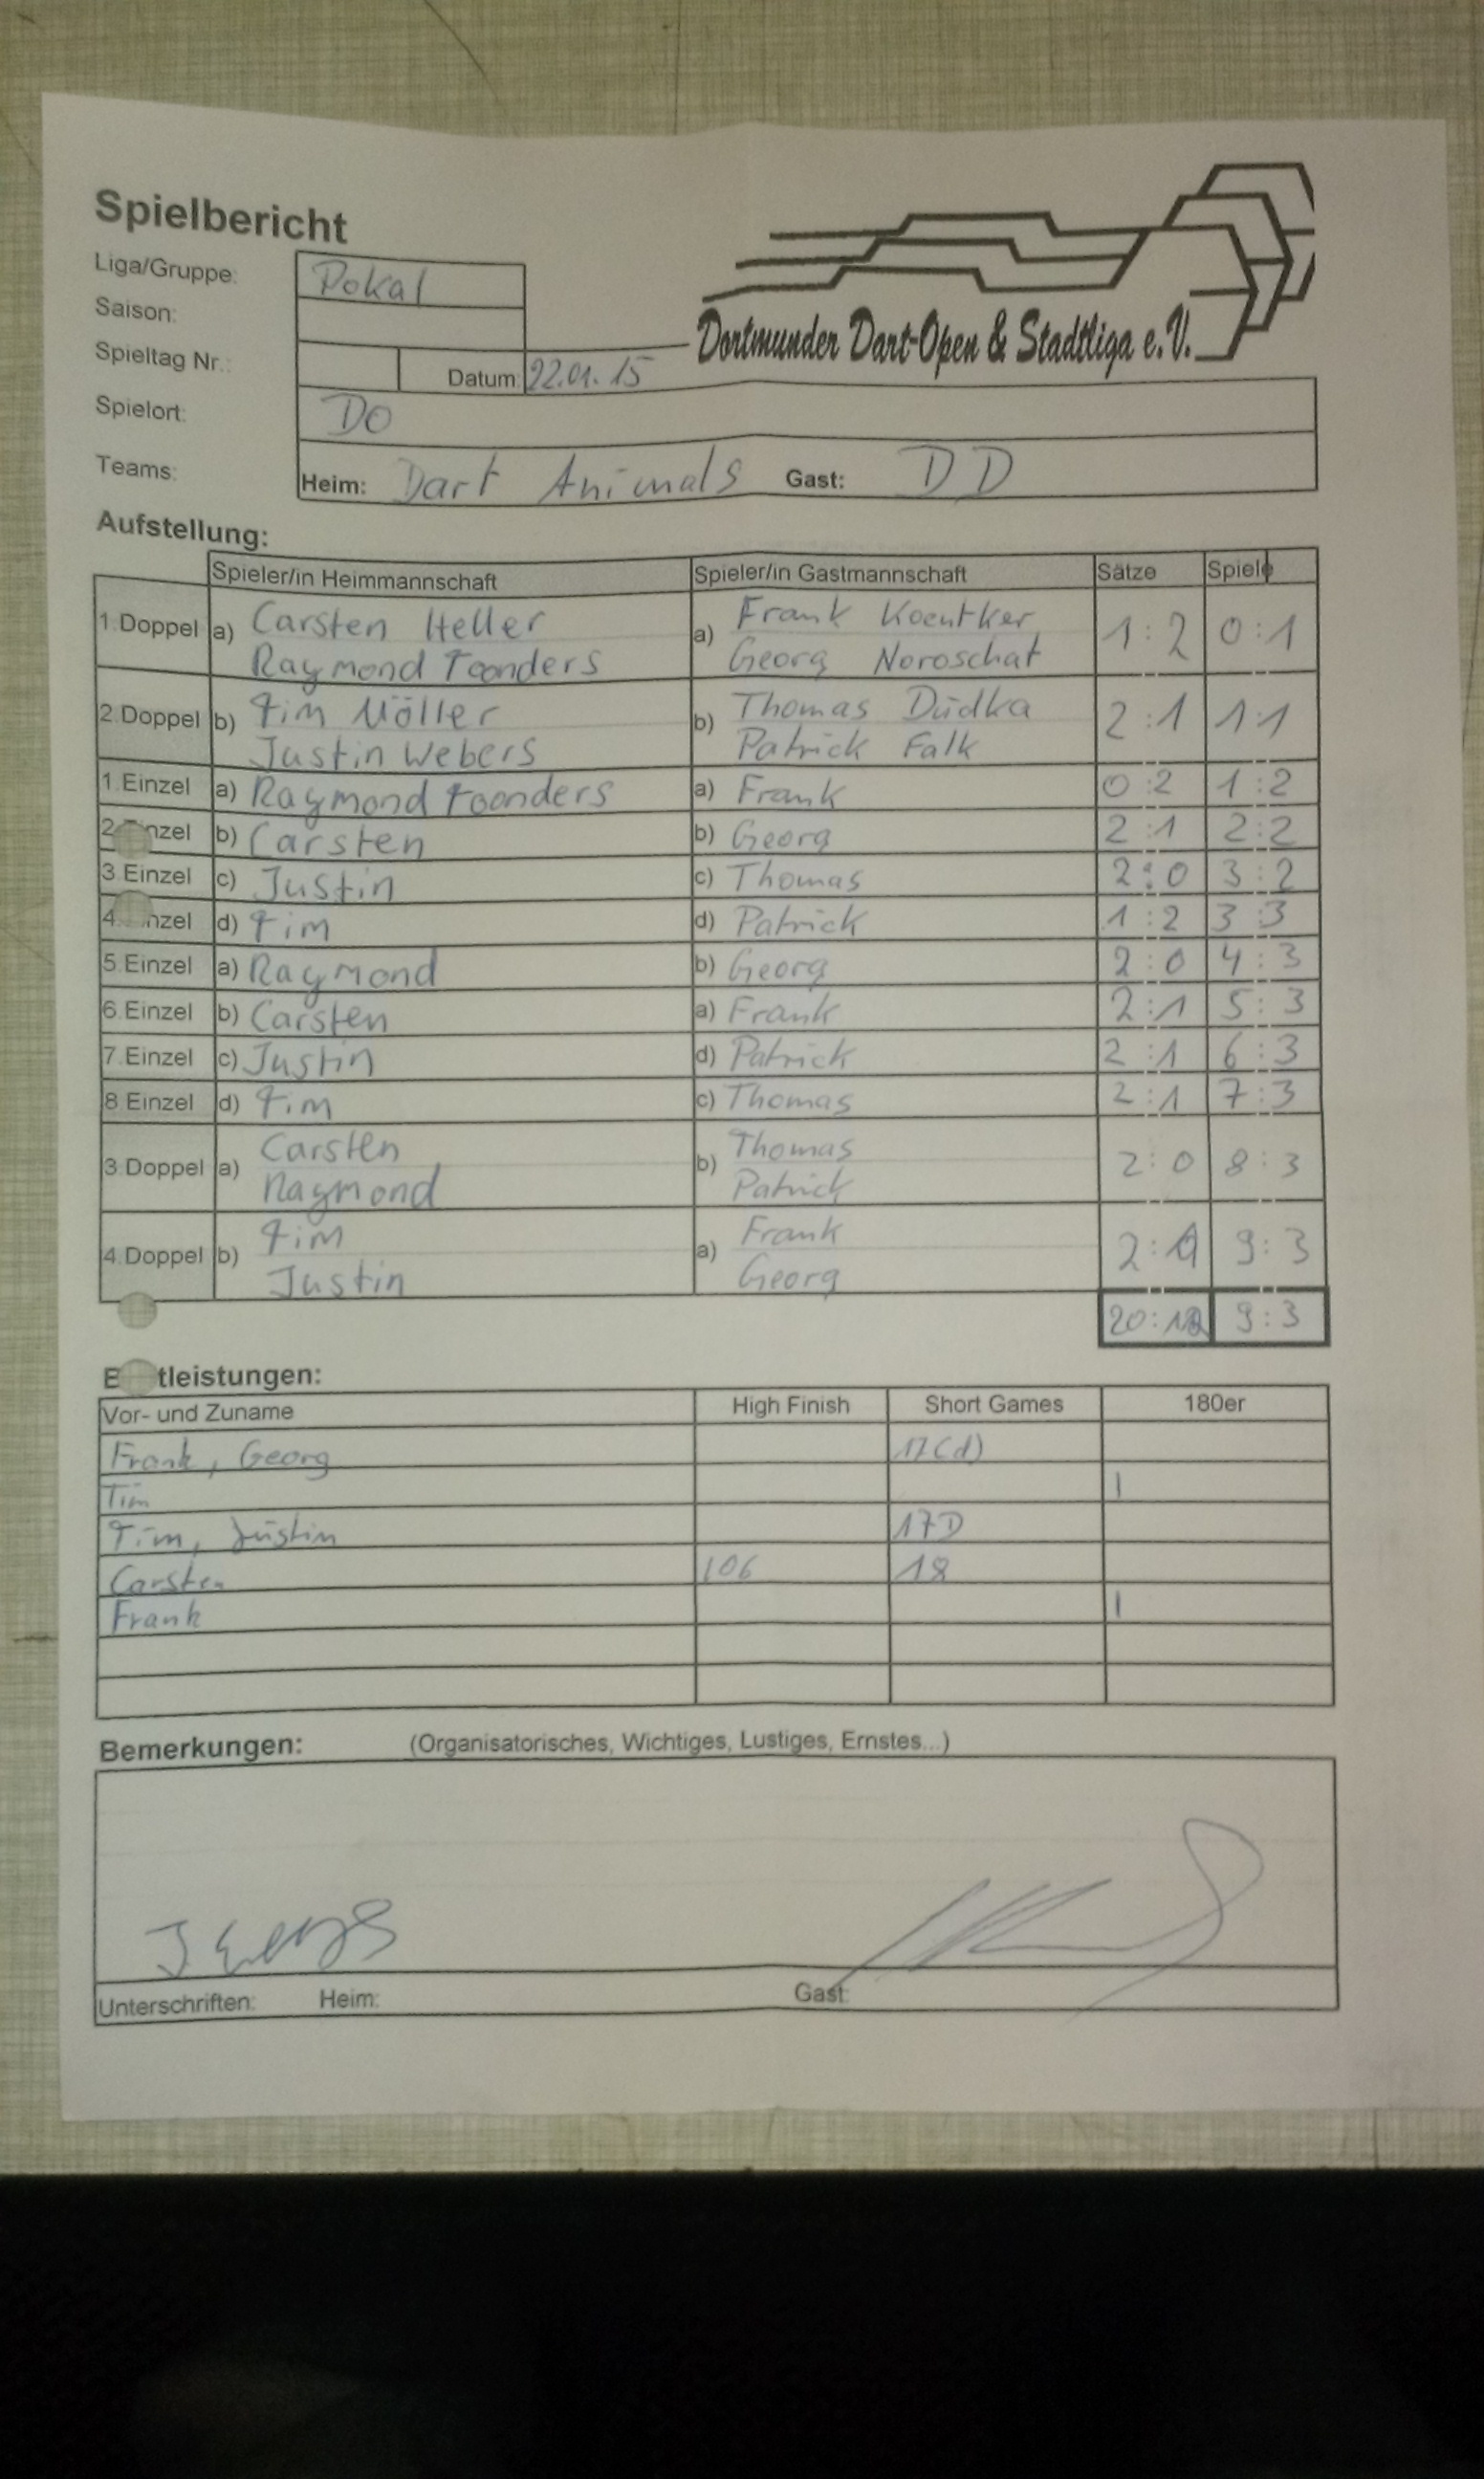 Spielbericht
Liga/Gruppe: Pokal
Saison:
Spieltag Nr.: Datum: 22.01.15
Dortmunder Dart-Open & Stadtliga e.V.
Spielort: DO
Teams: Heim: Dart Animals Gast: DD
Aufstellung:
Spieler/in Heimmannschaft Spieler/in Gastmannschaft Sätze Spiele
1.Doppel a) Carsten Heller a) Frank Koentker 1:2 0:1
Raymond Toonders Georg Noroschat
2.Doppel b) Tim Möller b) Thomas Dudka 2:1 1:1
Justin Webers Patrick Falk
1.Einzel a) Raymond Toonders a) Frank 0:2 1:2
2. nzel b) Carsten b) Georg 2:1 2:2
3.Einzel c) Justin c) Thomas 2:0 3:2
4. nzel d) Tim d) Patrick 1:2 3:3
5.Einzel a) Raymond b) Georg 2:0 4:3
6.Einzel b) Carsten a) Frank 2:1 5:3
7.Einzel c) Justin d) Patrick 2:1 6:3
8 Einzel d) Tim c) Thomas 2:1 7:3
3.Doppel a) Carsten b) Thomas 2:0 8:3
Raymond Patrick
4.Doppel b) Tim a) Frank 2: 9:3
Justin Georg
20: 9:3
B tleistungen:
Vor- und Zuname High Finish Short Games 180er
Frank, Georg 17(d)
Tim I
Tim, Justin 17D
Carsten 106 18
Frank I
Bemerkungen: (Organisatorisches, Wichtiges, Lustiges, Ernstes...)
Unterschriften: Heim: Gast: